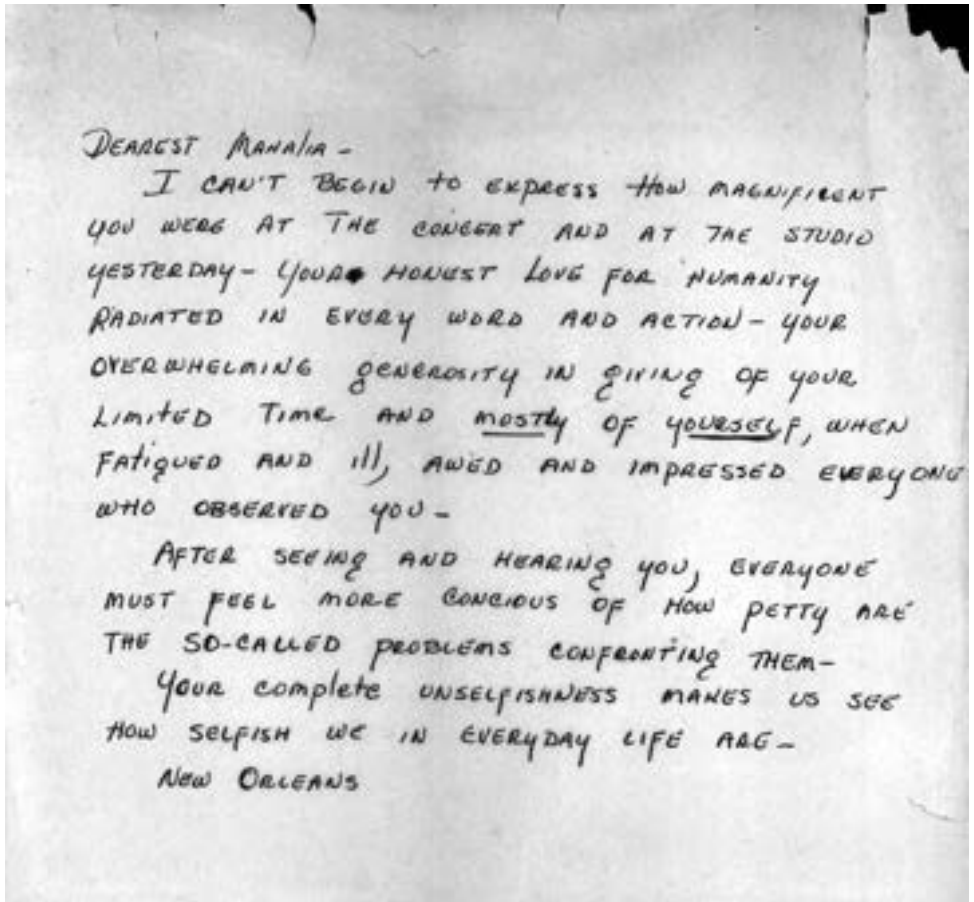 DEAREST MAHAlIA -
I CAN'T BEGIN to EXPRESS HOW MAGNIFICENT
YOU WERE AT THE CONCERT AND AT THE STUDIO
YESTERDAY - YOUR HONEST LOVE FOR HUMANITY
RADIATED IN EVERY WORD AND ACTION - YOUR
OVERWHELMING generosity IN giving OF YOUR
LIMITED TIME AND mostly OF YOURSELF, WHEN
FATIGUED AND ill, AWED AND IMPRESSED EVERYONE
WHO OBSERVED YOU -
AFTER SEEINg AND HEARINg YOU, EVERYONE
MUST FEEL MORE CONCIOUS OF HOW PETTY ARE
THE SO-CALLED PROBLEMS CONFRONTINg THEM -
YOUR complete UNSELFISHNESS MAKES US SEE
HOW SELFISH WE IN EVERYDAY LIFE ARE -
NEW ORLEANS